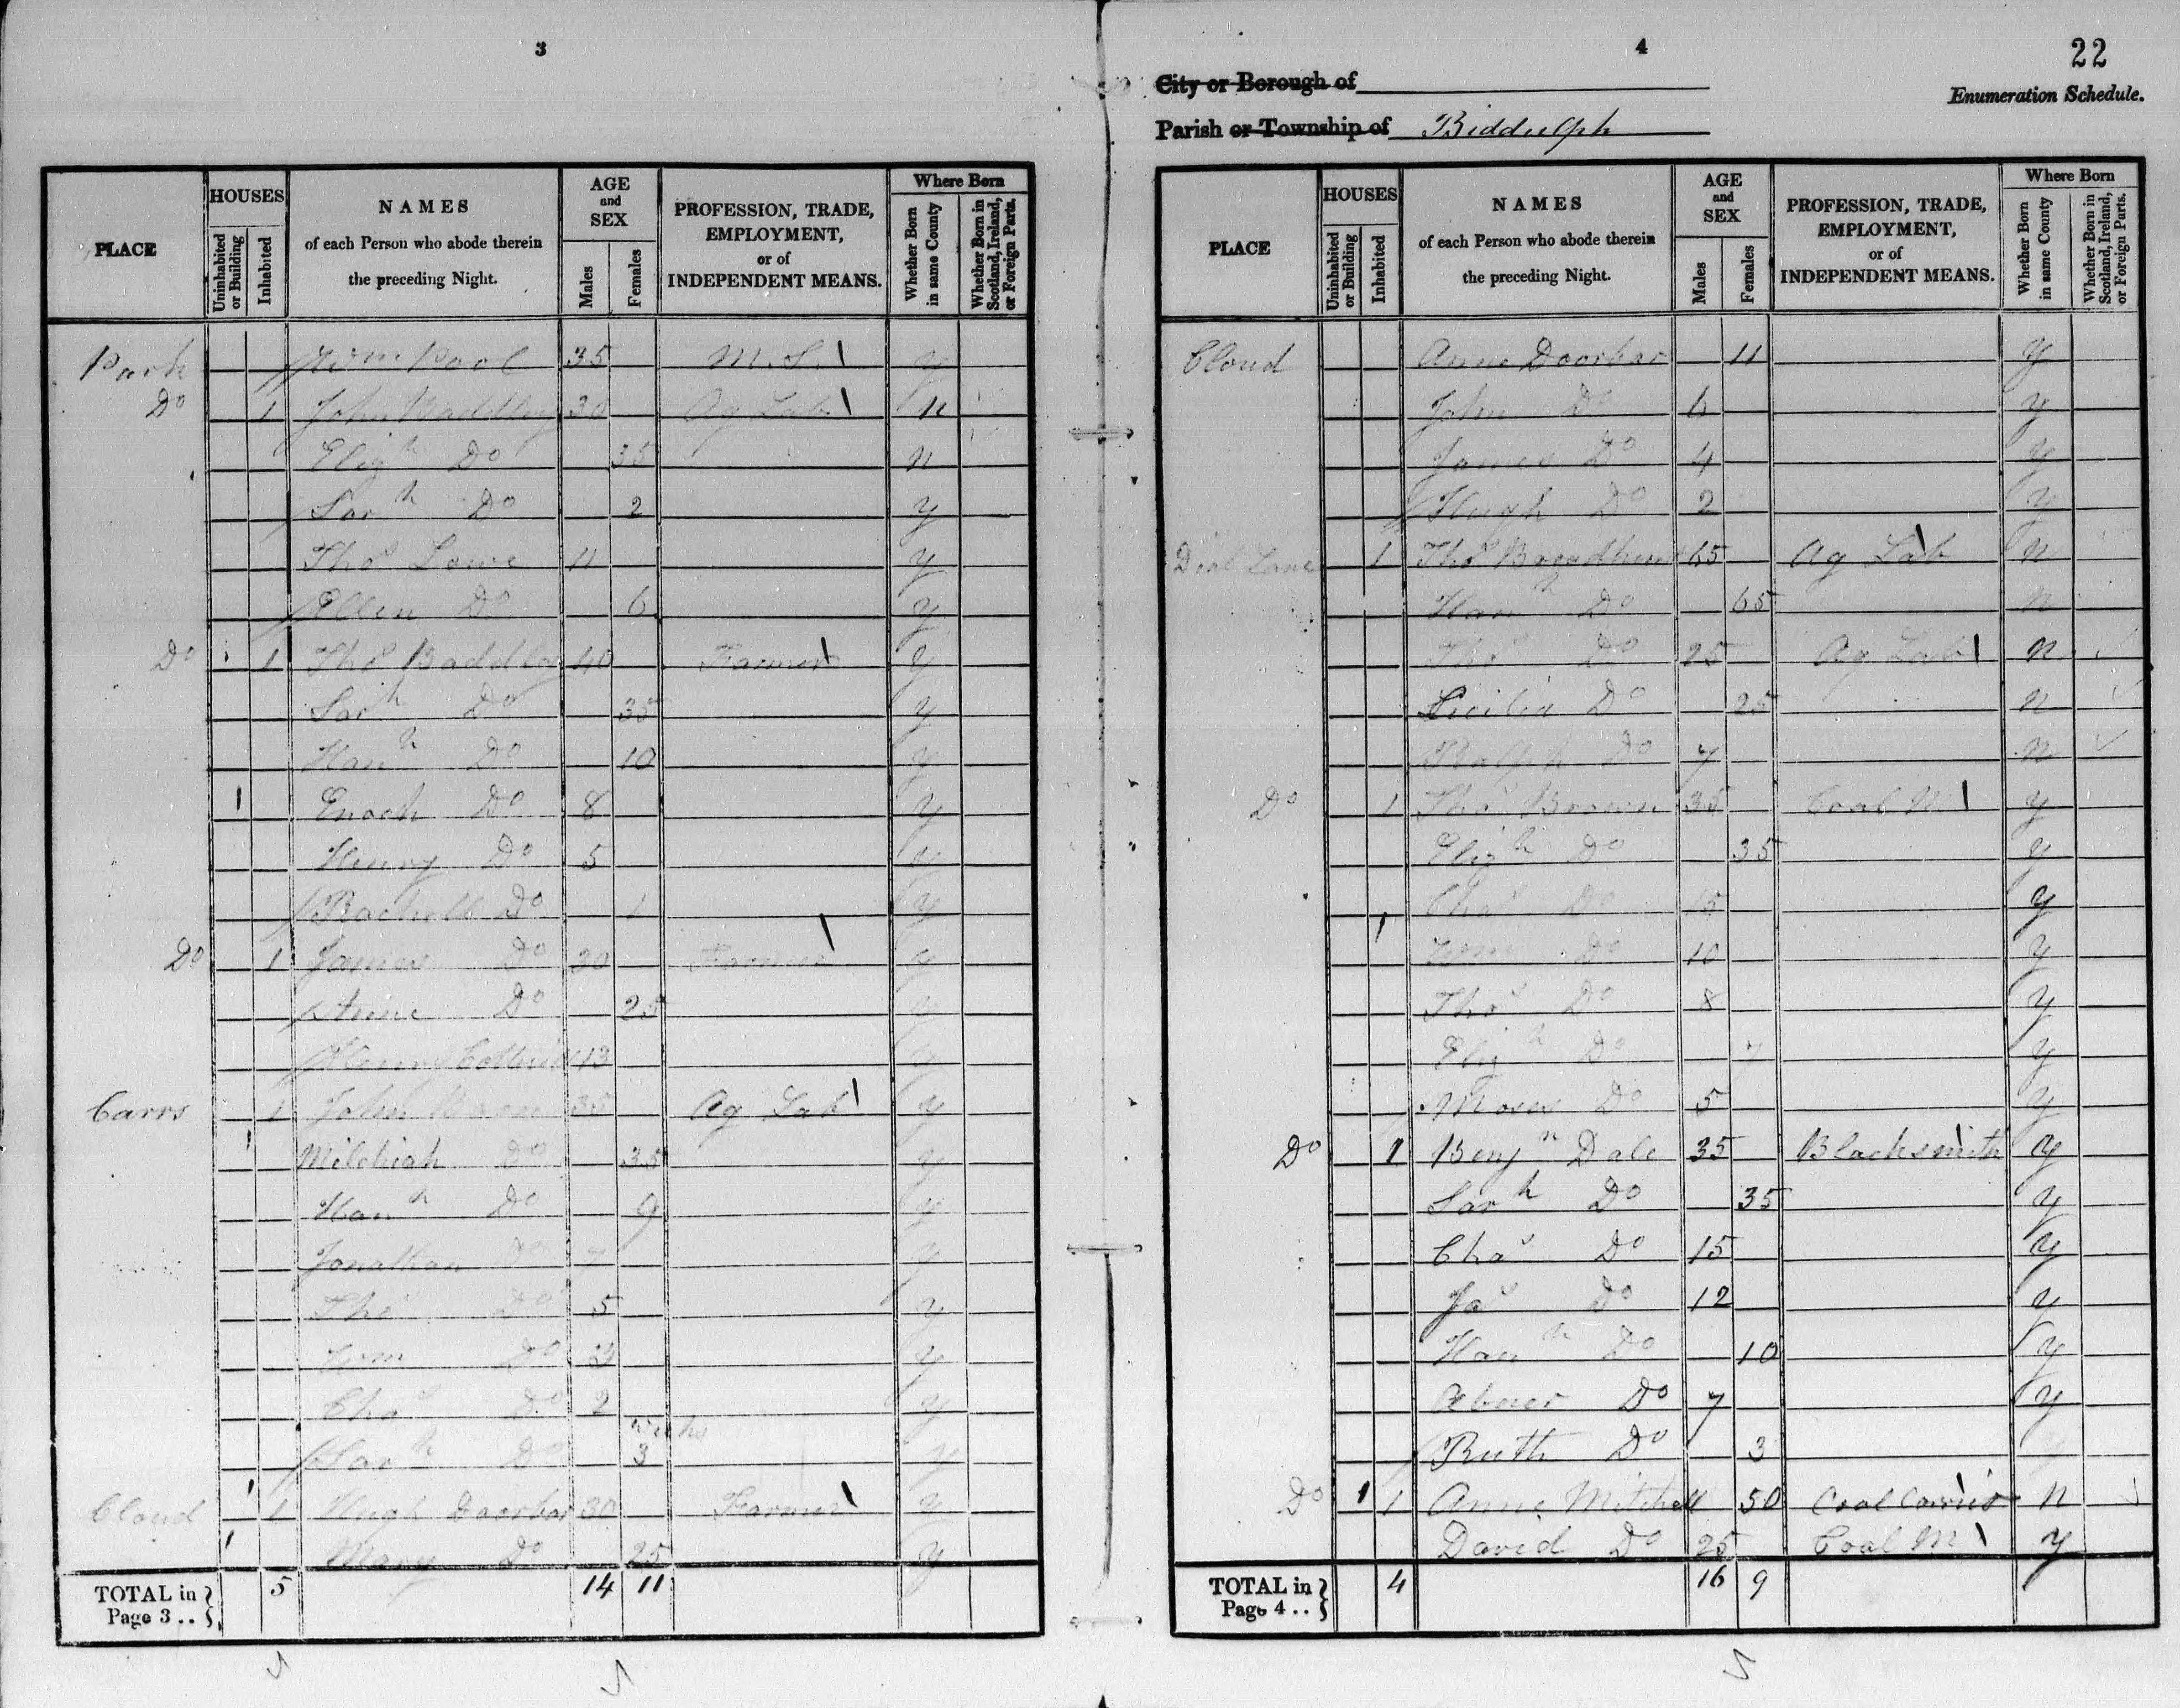 3
PLACE
HOUSES
Uninhabited or Building
Inhabited
NAMES
of each Person who abode therein
the preceding Night.
AGE
and
SEX
Males
Females
PROFESSION, TRADE,
EMPLOYMENT,
or of
INDEPENDENT MEANS.
Where Born
Whether Born in same County
Whether Born in Scotland, Ireland, or Foreign Parts.
Park Wm Pool 35 M. S. y
Do 1 John 30 Ag Lab n
Elizh Do 35 n
Sarh Do 2 y
Thos Lowe 11 y
Ellen Do 6 y
Do 1 Thos Baddley 40 Farmer y
Sarh Do 35 y
Hanh Do 10 y
Enoch Do 8 y
Henry Do 5 y
Rachell Do 1 y
Do 1 James Do 30 Farmer y
Anne Do 25 y
Henry 13 y
Carrs 1 John 35 Ag Lab y
Milchiah Do 35 y
Hanh Do 9 y
Jonathan Do 7 y
Thos Do 5 y
Wm Do 3 y
Chas Do 2 y
Sarh Do 3 Weeks y
Cloud 1 Hugh Doorbar 30 Farmer y
Mary Do 25 y
TOTAL in Page 3 .. 5 14 11
4
22
City or Borough of
Enumeration Schedule.
Parish or Township of Biddulph
PLACE
HOUSES
Uninhabited or Building
Inhabited
NAMES
of each Person who abode therein
the preceding Night.
AGE
and
SEX
Males
Females
PROFESSION, TRADE,
EMPLOYMENT,
or of
INDEPENDENT MEANS.
Where Born
Whether Born in same County
Whether Born in Scotland, Ireland, or Foreign Parts.
Cloud Anne Doorbar 11 y
John Do 6 y
James Do 4 y
Hugh Do 2 y
Dial Lane 1 Thos Broadhurst 65 Ag Lab n
Hanh Do 65 n
Thos Do 25 Ag Lab n
Sicilia Do 25 n
Ralph Do 7 n
Do 1 Thos Brown 35 Coal M y
Elizh Do 35 y
Chas Do 15 y
Wm Do 10 y
Thos Do 8 y
Elizh Do 7 y
Moses Do 5 y
Do 1 Benjn Dale 35 Blacksmith y
Sarh Do 35 y
Chas Do 15 y
Jas Do 12 y
Hanh Do 10 y
Abner Do 7 y
Ruth Do 3 y
Do 1 Anne Mitchell 50 Coal Carrier n
David Do 25 Coal M y
TOTAL in Page 4 .. 4 16 9